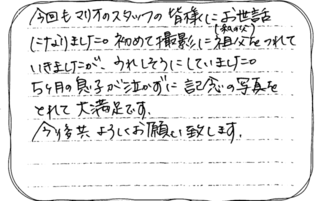 今回もマリオのスタッフの皆様にお世話
になりました。初めて撮影に祖父をつれて
(私の父)
いきましたが、うれしそうにしていました。
5ヶ月の息子が泣かずに記念の写真を
とれて大満足です。
今後共よろしくお願い致します。